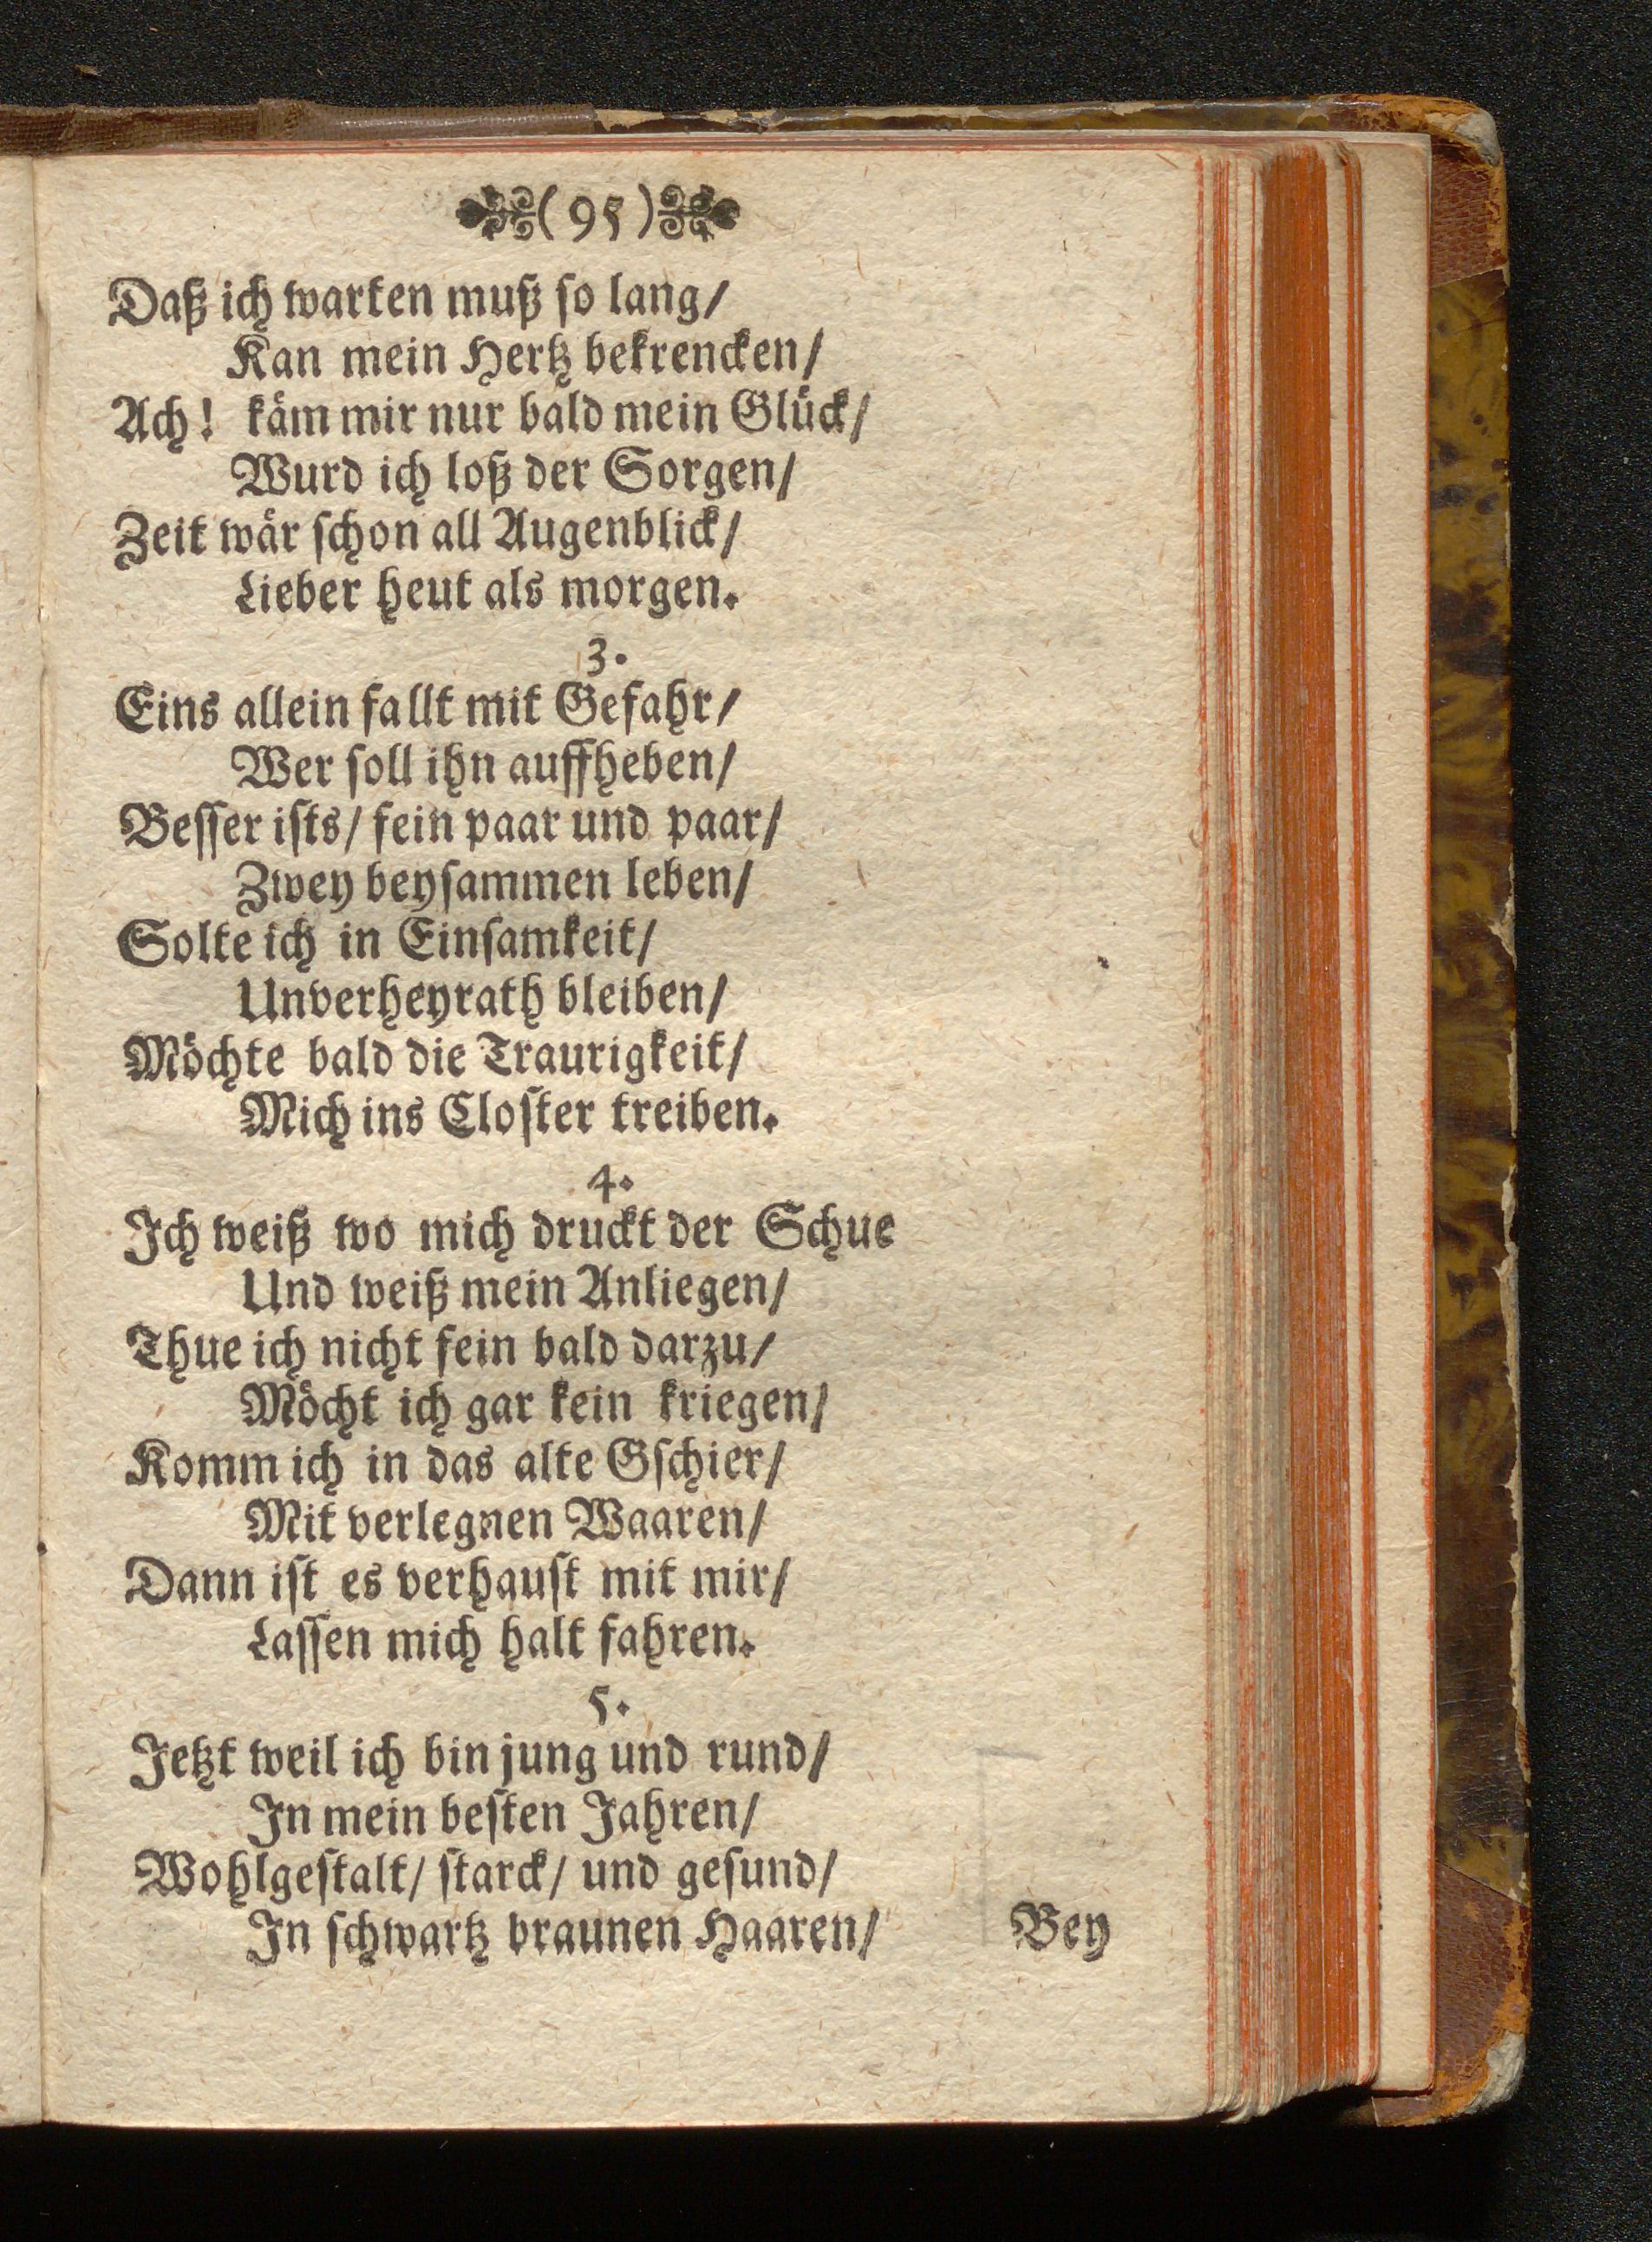 (95)
Daß ich warten muß ſo lang/
Kan mein Hertz bekrencken/
Ach! käm mir nur bald mein Glück/
Wurd ich loß der Sorgen/
Zeit wär ſchon all Augenblick/
Lieber heut als morgen.
3.
Eins allein fallt mit Gefahr/
Wer ſoll ihn auffheben/
Beſſer iſts/ fein paar und paar/
Zwey beyſammen leben/
Solte ich in Einſamkeit/
Unverheyrath bleiben/
Möchte bald die Traurigkeit/
Mich ins Cloſter treiben.
4.
Ich weiß wo mich druckt der Schue
Und weiß mein Anliegen/
Thue ich nicht fein bald darzu/
Möcht ich gar kein kriegen/
Komm ich in das alte Gſchier/
Mit verlegnen Waaren/
Dann iſt es verhauſt mit mir/
Laſſen mich halt fahren.
5.
Jetzt weil ich bin jung und rund/
In mein beſten Jahren/
Wohlgeſtalt/ ſtarck/ und geſund/
In ſchwartz braunen Haaren/
Bey